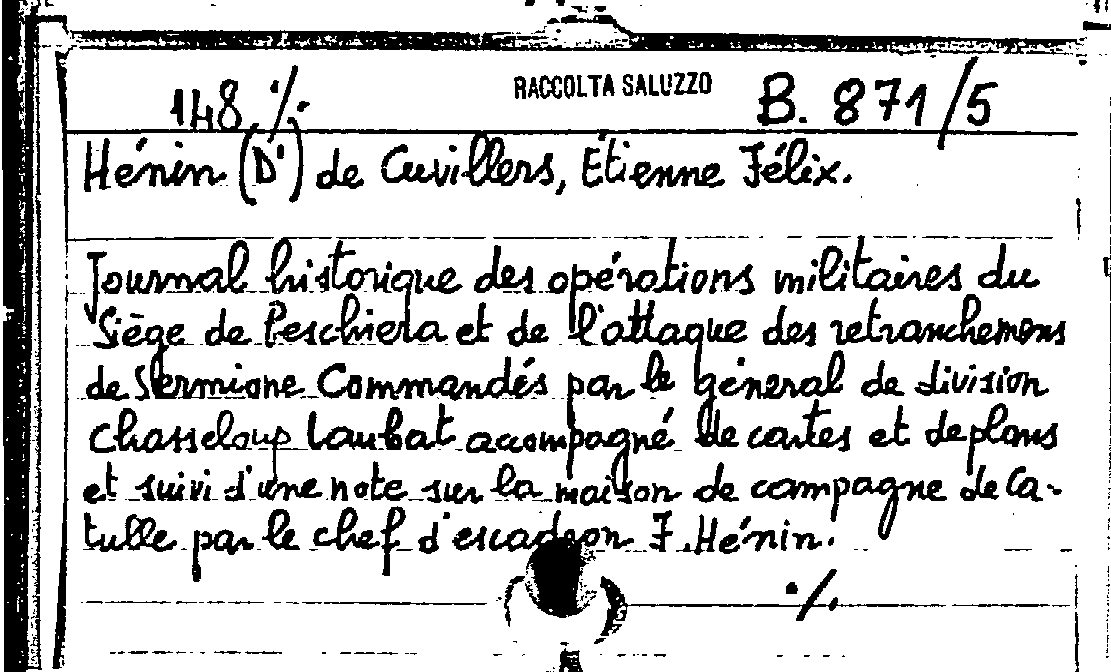 148 ./. RACCOLTA SALUZZO B. 871/5
Hénin (D') de Cuvillers, Étienne Félix.
Journal historique des opérations militaires du
Siège de Peschiera et de l'attaque des retranchemens
de Sermione Commandés par le général de division
Chasseloup Laubat accompagné de cartes et de plans
et suivi d'une note sur la maison de campagne de Ca-
tulle par le chef d'escadron F. Hénin.
./.